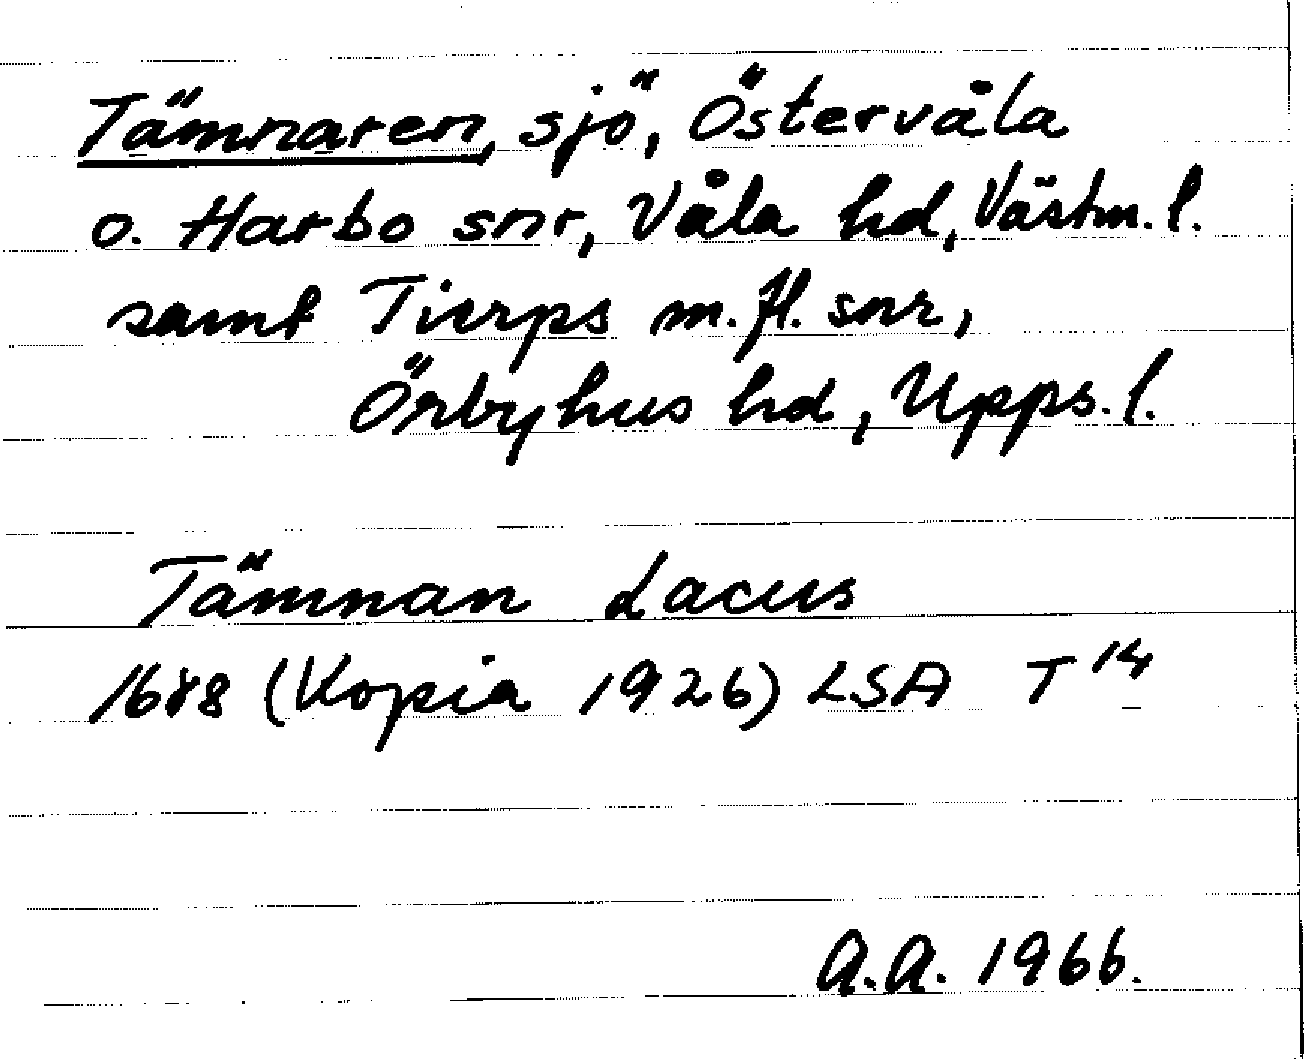 Tämnaren, sjö, Östervåla
o. Harbo snr, Våla hd, Västm. l.
samt Tierps m.fl. snr,
Örbyhus hd, Upps. l.
Tämnan Lacus
1688 (Kopia 1926) LSA T 14
A.A. 1966.